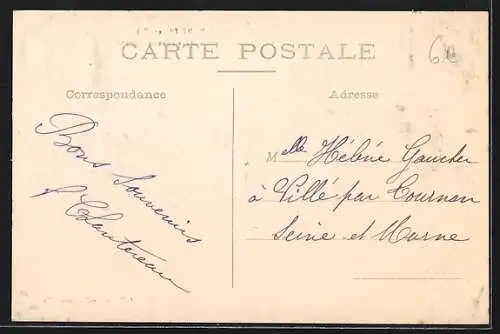 CARTE POSTALE
Correspondance
Adresse
Bons Souvenirs
Melle Hélène Gaucher
à Villé par Tournan
Seine et Marne